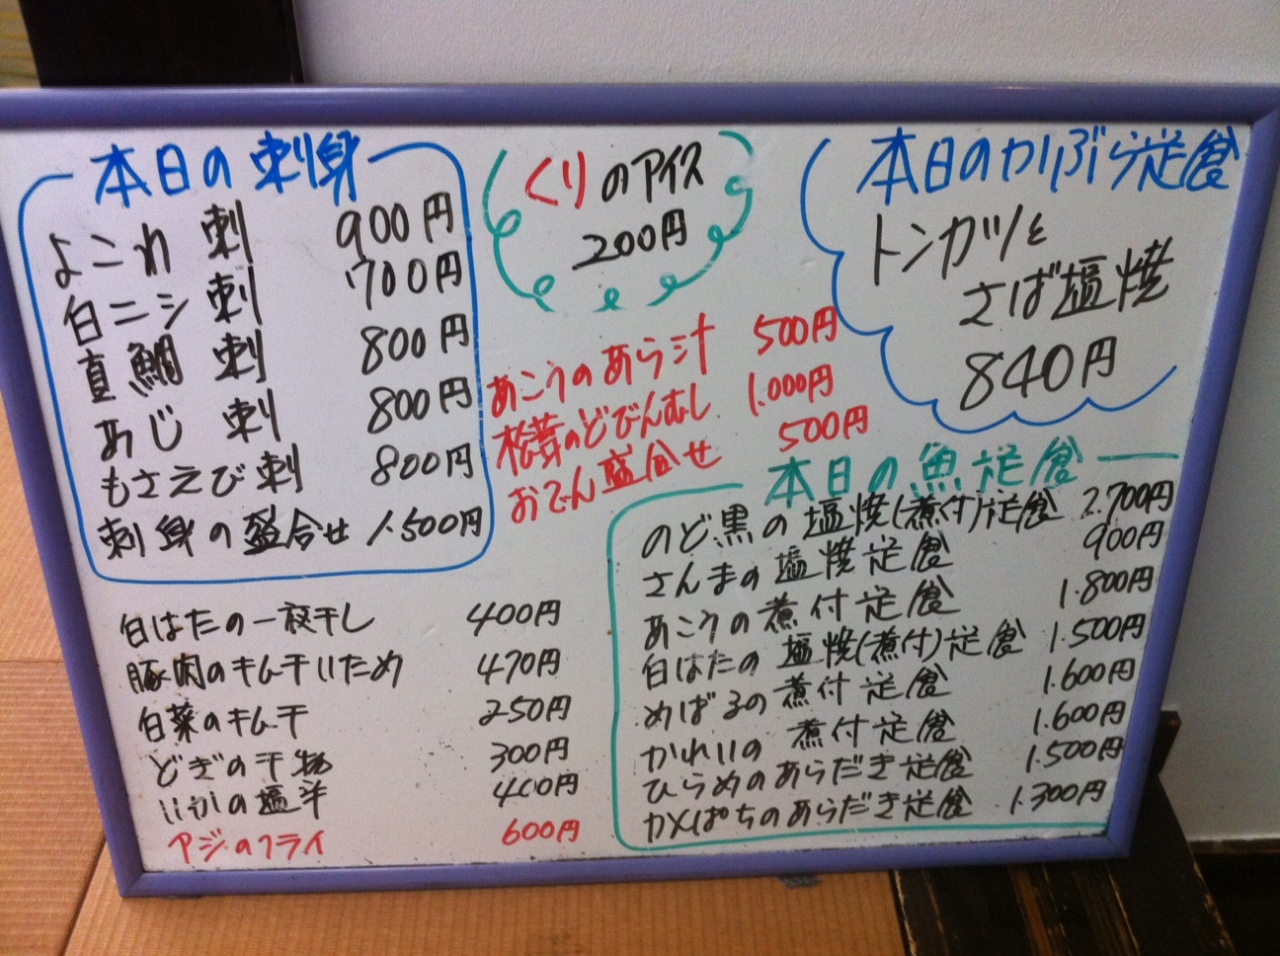 本日の刺身
よこわ 刺 900円
白ニシ 刺 700円
真鯛 刺 800円
あじ 刺 800円
もさえび 刺 800円
刺身の盛合せ 1.500円
くりのアイス
200円
本日のかぶら定食
トンカツと
さば塩焼
840円
あこうのあら汁 500円
松茸のどびんむし 1.000円
おでん盛合せ 500円
本日の魚定食
のど黒の塩焼(煮付)定食 2.700円
さんまの塩焼定食 900円
あこうの煮付定食 1.800円
白はたの塩焼(煮付)定食 1.500円
めばるの煮付定食 1.600円
かれいの煮付定食 1.600円
ひらめのあらだき定食 1.500円
カンパちのあらだき定食 1.300円
白はたの一夜干し 400円
豚肉のキムチいため 470円
白菜のキムチ 250円
どぎの干物 300円
いかの塩辛 400円
アジのフライ 600円